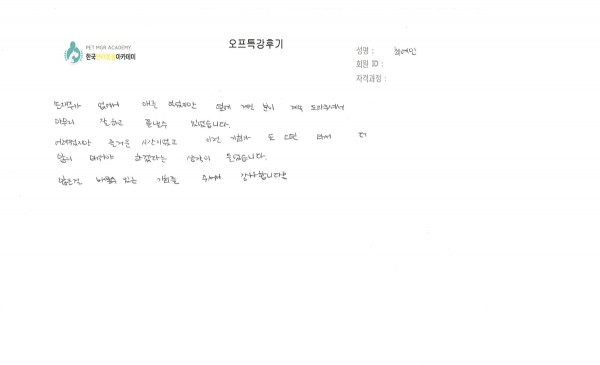 PET MGR ACADEMY
한국반려동물아카데미
오프특강후기
성명 : 최예인
회원 ID :
자격과정 :
손재주가 없어서 애를 먹었지만 옆에 계신 분이 계속 도와주셔서
마무리 잘하고 끝낼수 있었습니다.
어려웠지만 즐거운 시간이었고 이런 기회가 또 오면 와서 더
많이 배워야 하겠다는 생각이 들었습니다.
많은걸 배울수 있는 기회를 주셔서 감사합니다